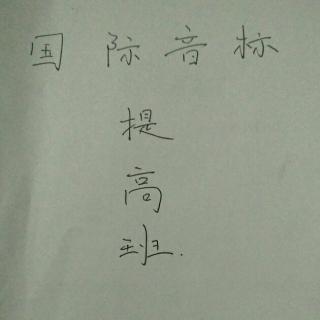 国际音标
提
高
班.